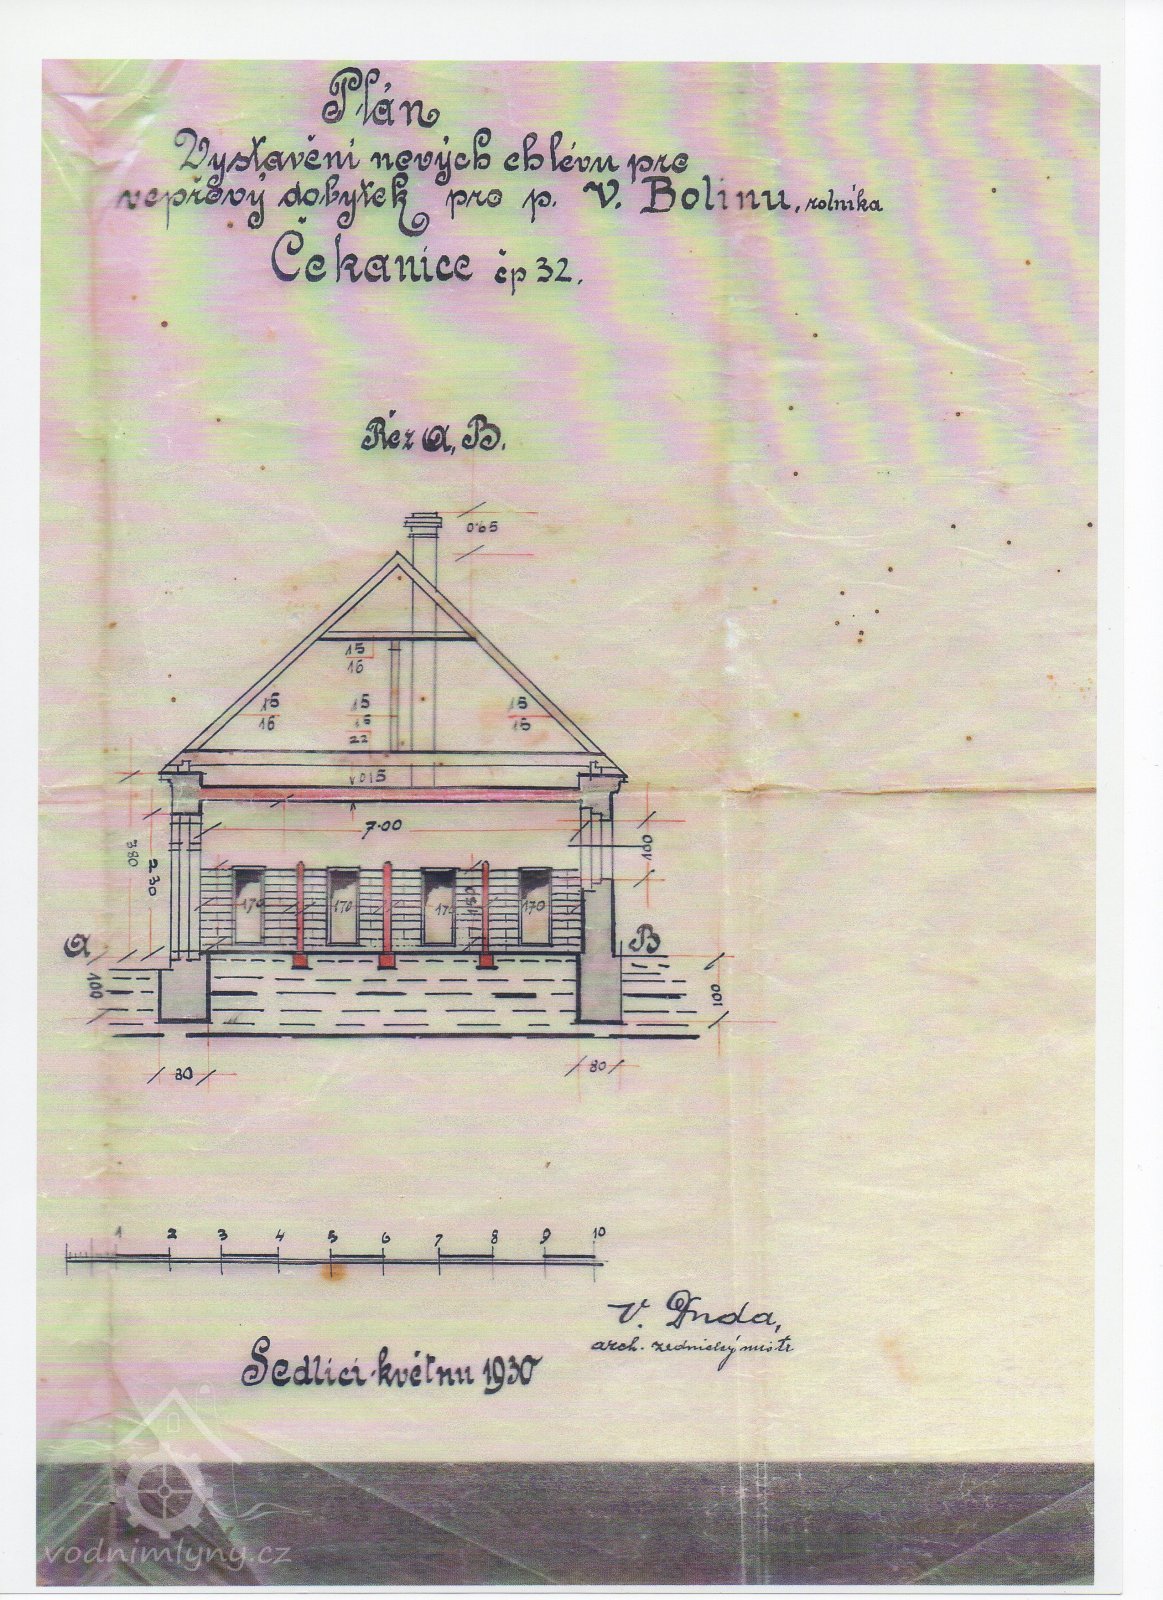 Plán
Vystavění nových chlévu pro
vepřový dobytek pro p. V. Bolinu, rolníka
Čekanice čp 32.
Řez A, B.
0·65
15
16
15
16
15
15
22
15
15
015
7·00
380
230
100
170
170
170
130
170
A
B
100
100
80
80
1 2 3 4 5 6 7 8 9 10
V. Duda,
arch. zednický mistr
Sedlici·květnu 1930
vodnimlyny.cz